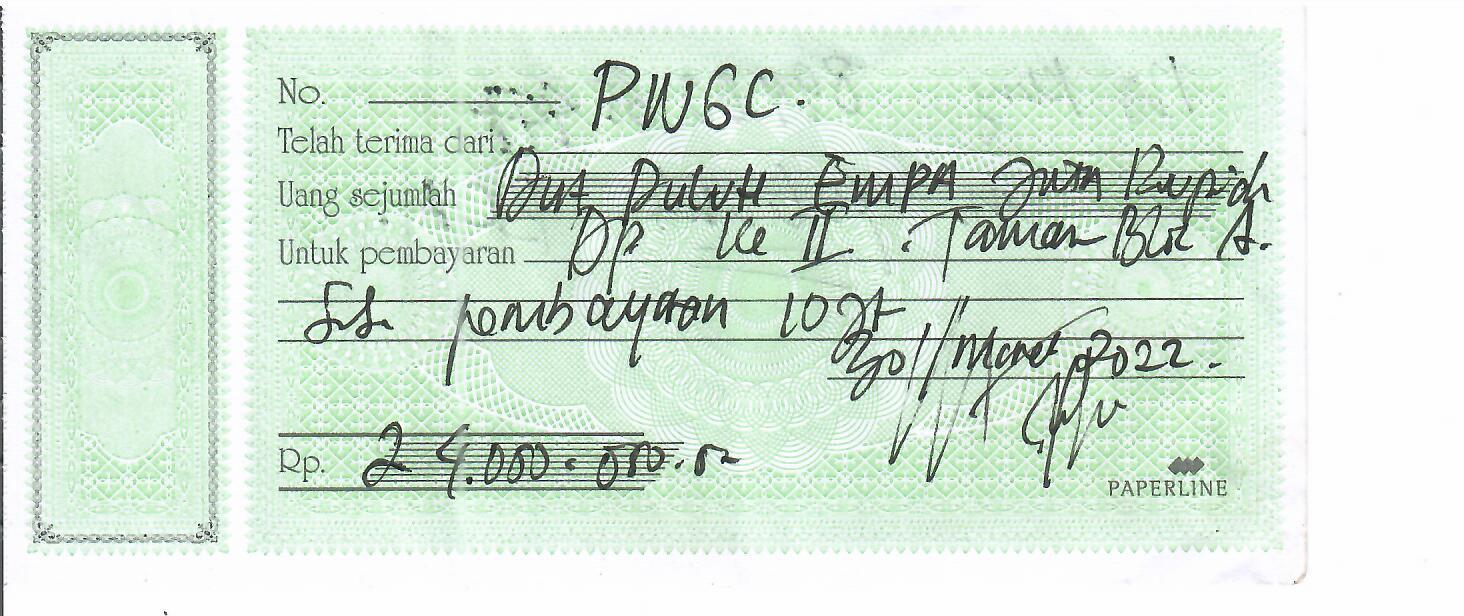 No. PWGC.
Telah terima dari
Uang sejumlah Dua Puluh Empa Juta Rupiah
Untuk pembayaran Dp Ke II. Taman Blok A.
Sisa pembayaran 10 Jt
30 Maret 2022.
Rp. 24.000.000.00
PAPERLINE